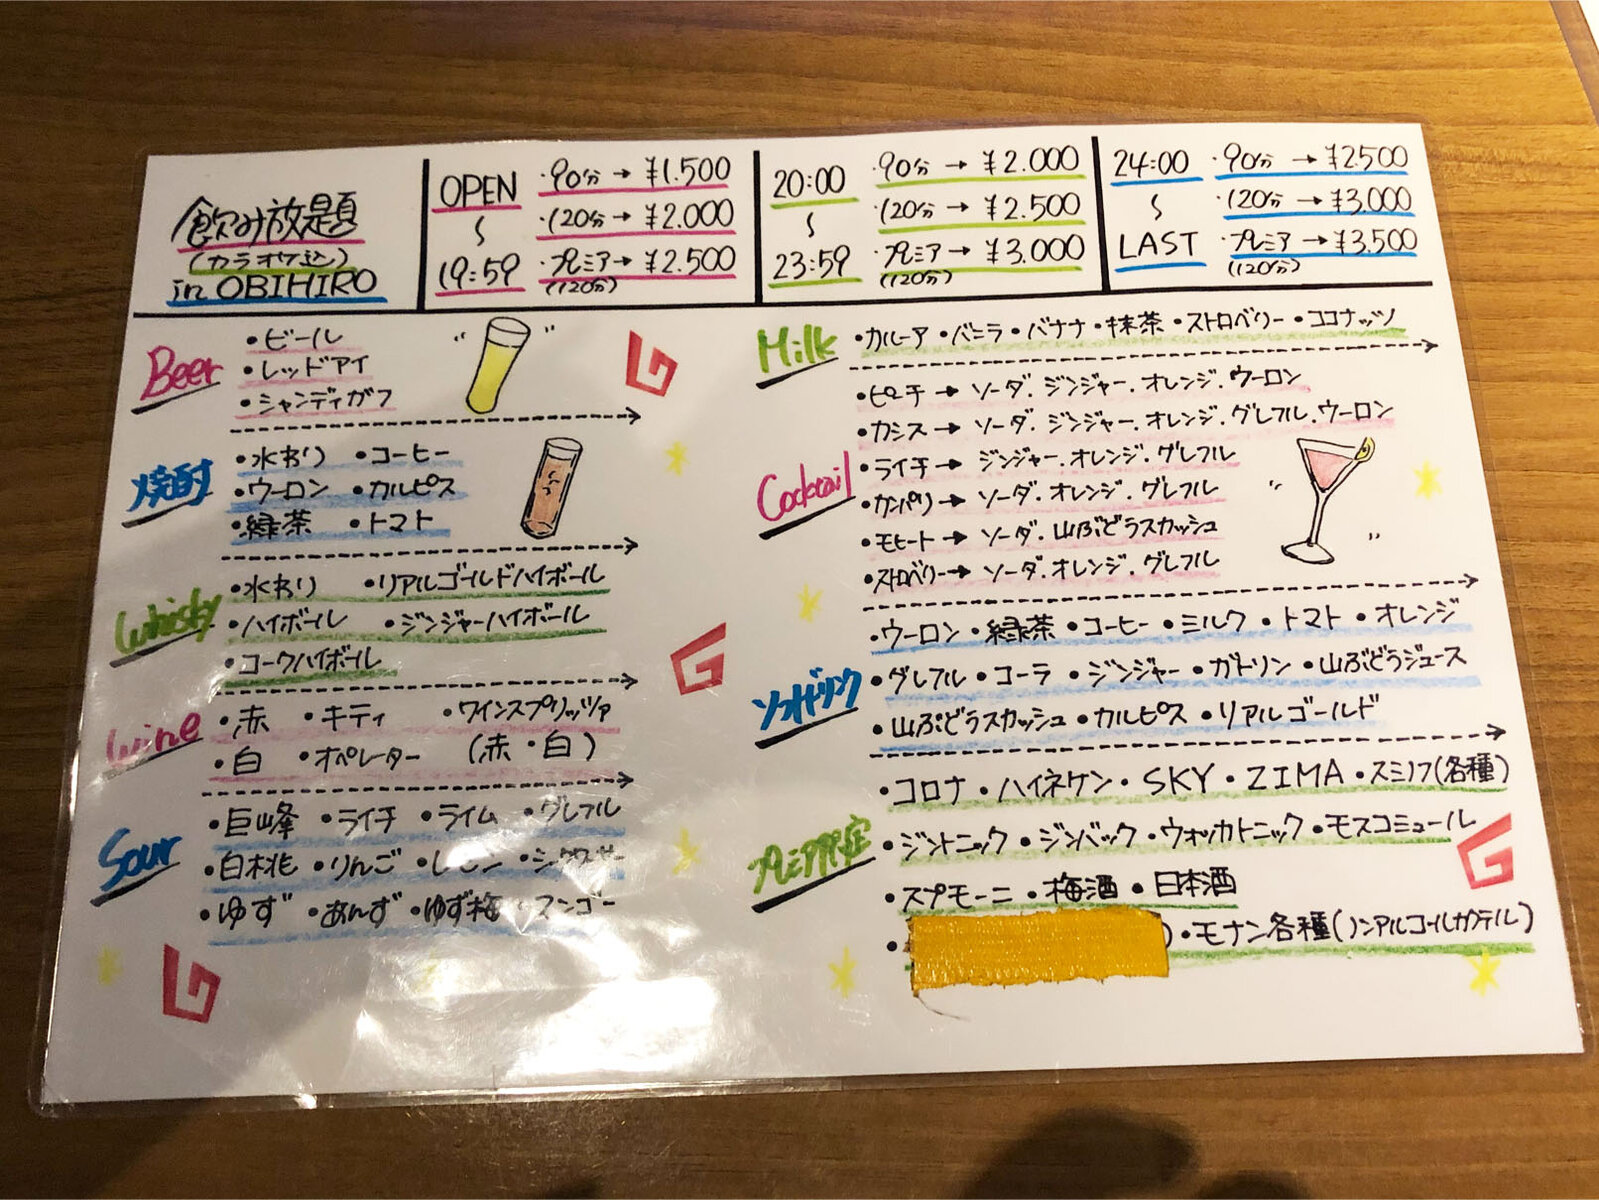 飲み放題
(カラオケ込)
in OBIHIRO
OPEN
〜
19:59
・90分→¥1.500
・120分→¥2.000
・プレミア→¥2.500
(120分)
20:00
〜
23:59
・90分→¥2.000
・120分→¥2.500
・プレミア→¥3.000
(120分)
24:00
〜
LAST
・90分→¥2500
・120分→¥3.000
・プレミア→¥3.500
(120分)
Beer
・ビール
・レッドアイ
・シャンディガフ
焼酎
・水わり ・コーヒー
・ウーロン ・カルピス
・緑茶 ・トマト
Whisky
・水わり ・リアルゴールドハイボール
・ハイボール ・ジンジャーハイボール
・コークハイボール
Wine
・赤 ・キティ ・ワインスプリッツァ
・白 ・オペレーター (赤・白)
Sour
・巨峰 ・ライチ ・ライム ・グレフル
・白桃 ・りんご ・レモン ・シークワーサー
・ゆず ・あんず ・ゆず梅 ・マンゴー
Milk
・カルーア ・バニラ ・バナナ ・抹茶 ・ストロベリー ・ココナッツ
Cocktail
・ピーチ→ソーダ.ジンジャー.オレンジ.ウーロン
・カシス→ソーダ.ジンジャー.オレンジ.グレフル.ウーロン
・ライチ→ジンジャー.オレンジ.グレフル
・カンパリ→ソーダ.オレンジ.グレフル
・モヒート→ソーダ.山ぶどうスカッシュ
・ストロベリー→ソーダ.オレンジ.グレフル
ソフトドリンク
・ウーロン ・緑茶 ・コーヒー ・ミルク ・トマト ・オレンジ
・グレフル ・コーラ ・ジンジャー ・ガトリン ・山ぶどうジュース
・山ぶどうスカッシュ ・カルピス ・リアルゴールド
プレミア限定
・コロナ ・ハイネケン ・SKY ・ZIMA ・スミノフ(各種)
・ジントニック ・ジンバック ・ウォッカトニック ・モスコミュール
・スプモーニ ・梅酒 ・日本酒
・ ) ・モナン各種(ノンアルコールカクテル)